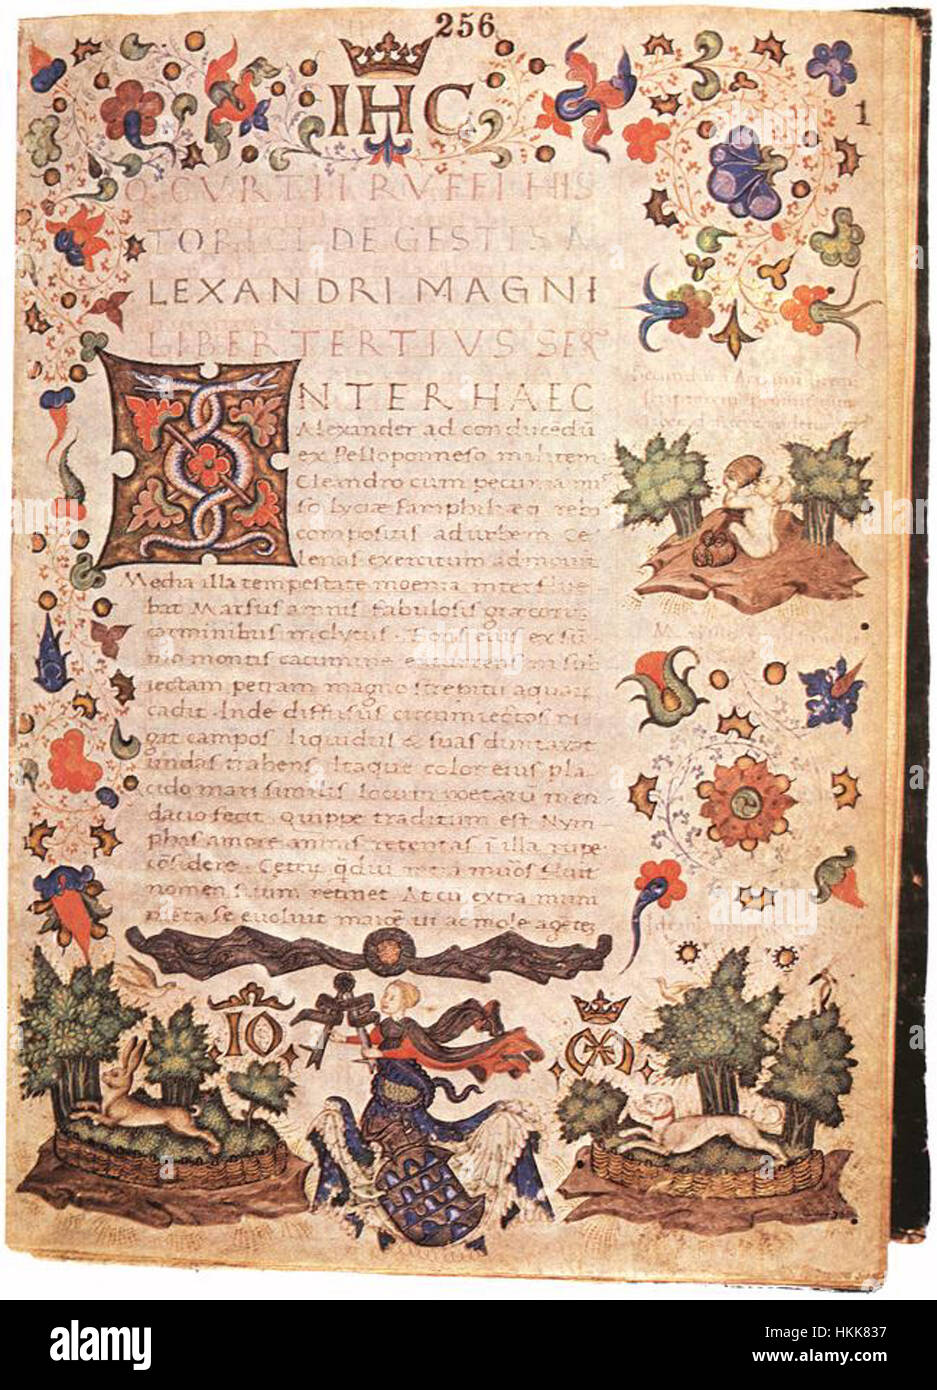 256
1
IHC
Q. CVRTII RVFFI HIS
TORICI DE GESTIS A
LEXANDRI MAGNI
LIBER TERTIVS SER
NTER HAEC
Alexander ad conducedū
ex Pelloponneso militem
Cleandro cum pecunia mis
so Lyciæ Pamphiliæq reb
compositis ad urbem Ce
lenas exercitum admouit
Media illa tempestate moenia interflue
bat Marsus amnis fabulosis græcorum
carminibus inclytus. Fons eius ex sum
mo montis cacumine excurrens in sub
iectam petram magno strepitu aquarum
cadit. Inde diffusus circumiectos ri
gat campos liquidus & suas duntaxat
undas trahens. Itaque color eius pla
cido mari similis locum poetarū men
dacio fecit. Quippe traditum est Nym
phas amore amnis retentas ī illa rupe
cōsidere. Ceterū q̄diu intra muros fluit
nomen suum retinet. At cū extra muni
mēta se evoluit maiore ui ac mole agētez
IO
alamy
Image ID: HKK837
www.alamy.com